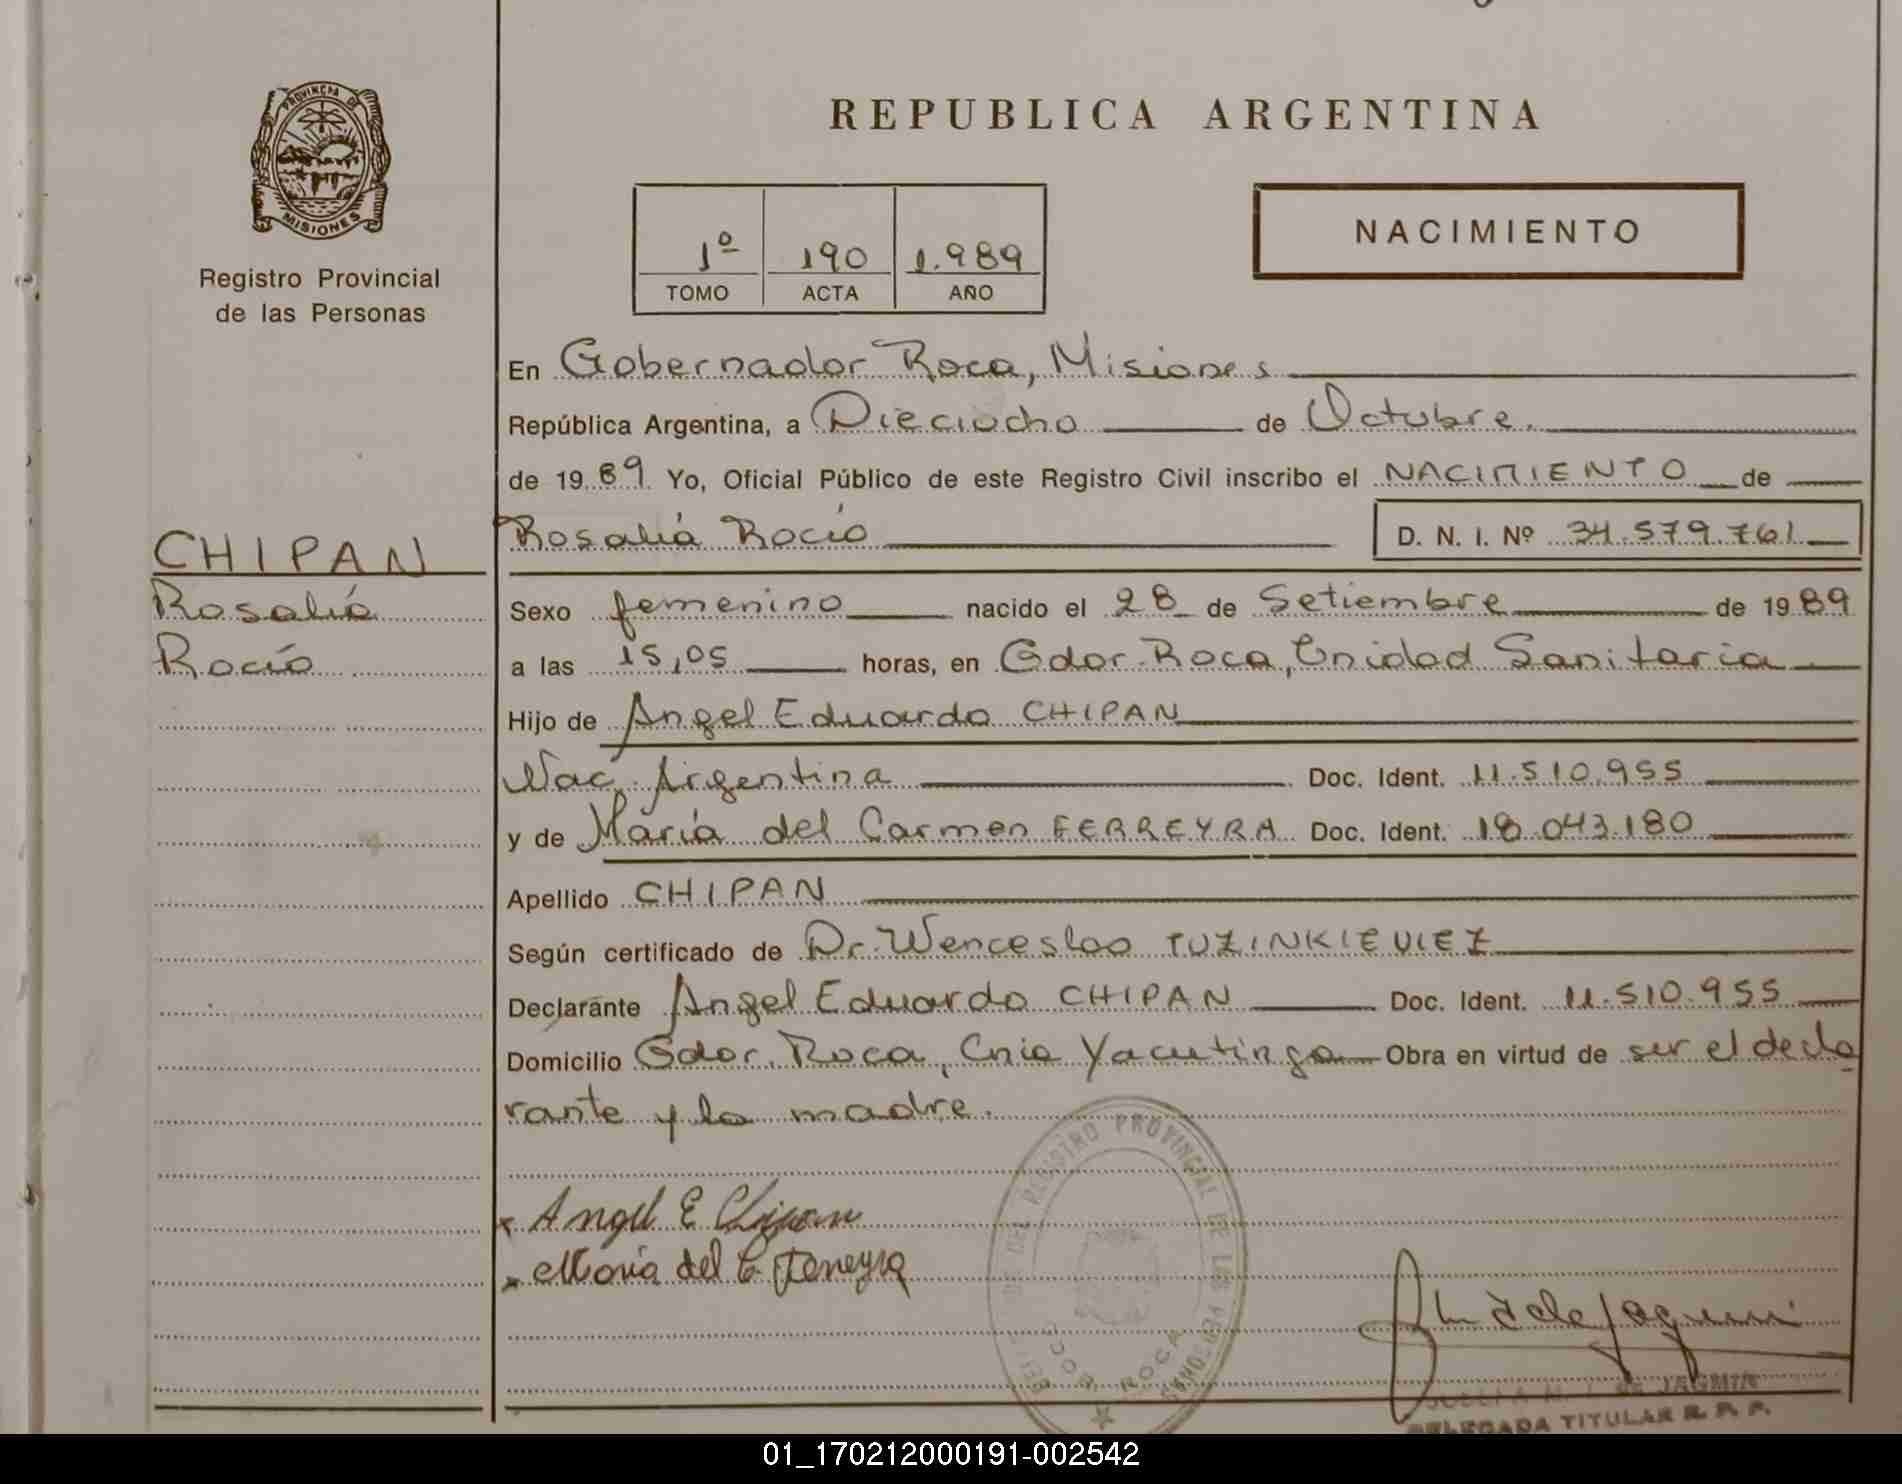 PROVINCIA DE
MISIONES
Registro Provincial
de las Personas
REPUBLICA ARGENTINA
1º 190 1.989
TOMO ACTA AÑO
NACIMIENTO
En Gobernador Roca, Misiones
República Argentina, a Dieciocho de Octubre.
de 1989 Yo, Oficial Público de este Registro Civil inscribo el NACIMIENTO de
Rosalía Rocío D. N. I. Nº 34.579.761
CHIPAN
Rosalía
Rocío
Sexo femenino nacido el 28 de Setiembre de 1989
a las 15,05 horas, en Gdor. Roca, Unidad Sanitaria
Hijo de Angel Eduardo CHIPAN
Nac. Argentina Doc. Ident. 11.510.955
y de María del Carmen FERREYRA Doc. Ident. 18.043.180
Apellido CHIPAN
Según certificado de Dr. Wenceslao TUZINKIEVIEZ
Declarante Angel Eduardo CHIPAN Doc. Ident. 11.510.955
Domicilio Gdor. Roca, Cnia Yacutinga Obra en virtud de ser el decla
rante y la madre.
Angel E Chipan
María del C Ferreyra
DEL REGISTRO PROVINCIAL DE LAS PERSONAS
GDOR. ROCA
DE JAGMIN
DELEGADA TITULAR R. P. P.
01_170212000191-002542